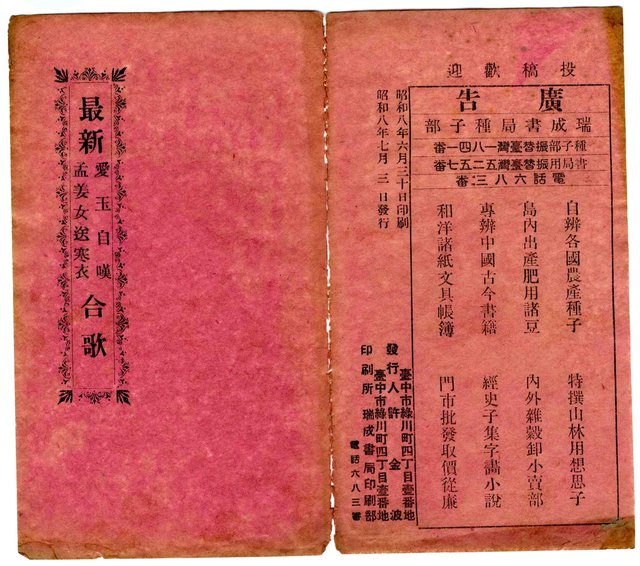 投稿歡迎
廣告
瑞成書局種子部
種子部振替臺灣一八四一番
書局用振替臺灣五二五七番
電話六八三番
自辦各國農產種子 特撰山林用想思子
島內出產肥用諸豆 內外雜穀卸小賣部
專辦中國古今書籍 經史子集字畵小說
和洋諸紙文具帳簿 門市批發取價從廉
昭和八年六月三十日印刷
昭和八年七月三日發行
臺中市綠川町四丁目壹番地
發行人許金波
臺中市綠川町四丁目壹番地
印刷所瑞成書局印刷部
電話六八三番
最新
愛玉自嘆
孟姜女送寒衣
合歌